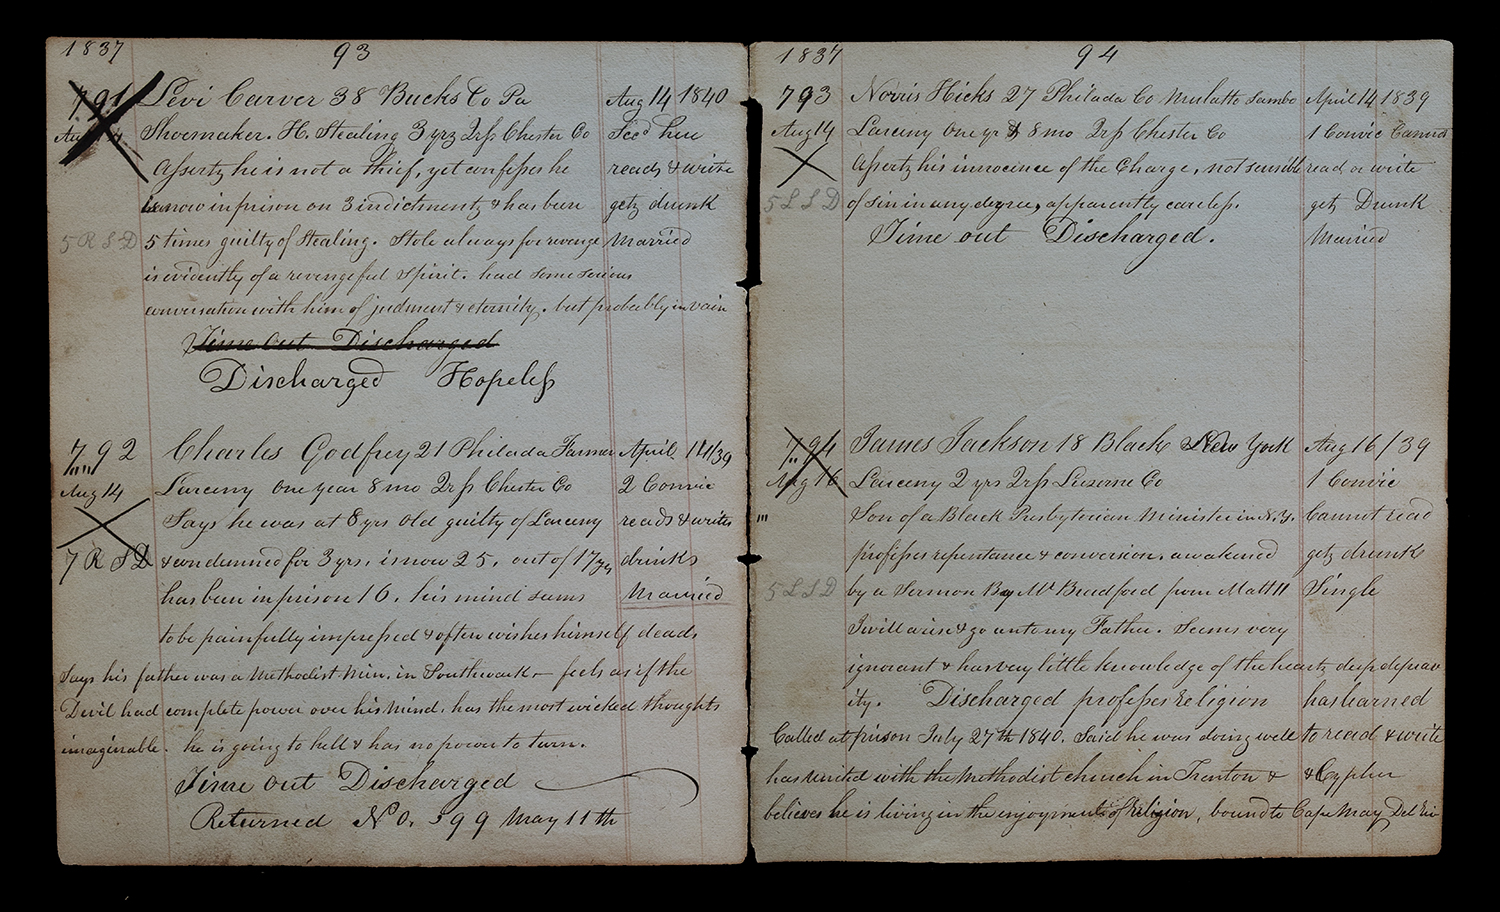 1837 93
791 Levi Carver 38 Bucks Co Pa Aug 14 1840
Aug Shoemaker. H. Stealing 3 yrs 2 rps Chester Co Secd Line
Asserts he is not a thief, yet confesses he reads & write
is now in prison on 3 indictments & has been gets drunk
5 R S D 5 times guilty of Stealing. Stole always for revenge Married
is evidently of a revengeful Spirit. had some serious
conversation with him of judment & eternity. but probably in vain
Time out Discharged
Discharged Hopeless
792 Charles Godfrey 21 Philada Farmer April 14/39
Aug 14 Larceny One year 8 mo 2 rps Chester Co 2 Convic
Says he was at 8 yrs old guilty of Larceny reads & writes
7 R S D & condemned for 3 yrs. is now 25. out of 17 yrs drinks
has been in prison 16. his mind seems Married
to be painfully impressed & often wishes himself dead
Says his father was a Methodist Min. in Southwark – feels as if the
Devil had complete power over his mind. has the most wicked thoughts
imaginable. he is going to hell & has no power to turn.
Time out Discharged
Returned No. 399 May 11th
1837 94
793 Norris Hicks 27 Philada Co Mulatto Sambo April 14 1839
Aug 14 Larceny One yr & 8 mo 2 rps Chester Co 1 Convic Cannot
Asserts his innocence of the Charge, not sensible read or write
5 L S D of sin in any degree, apparently careless. gets Drunk
Time out Discharged. Married
794 James Jackson 18 Black New York Aug 16/39
Aug 16 Larceny 2 yrs 2 rps Luzerne Co 1 Convic
Son of a Black Presbyterian Minister in N.Y. Cannot read
professes repentance & conversion. awakened gets drunk
5 L S D by a Sermon By Mr Bradford from Matt 11 Single
I will arise & go unto my Father. Seems very
ignorant & has very little knowledge of the hearts deep deprav
ity. Discharged professes religion has learned
Called at prison July 27th 1840. Said he was doing well to read & write
has united with the Methodist church in Trenton & & Cypher
believes he is living in the enjoyment of Religion, bound to Cape May Del